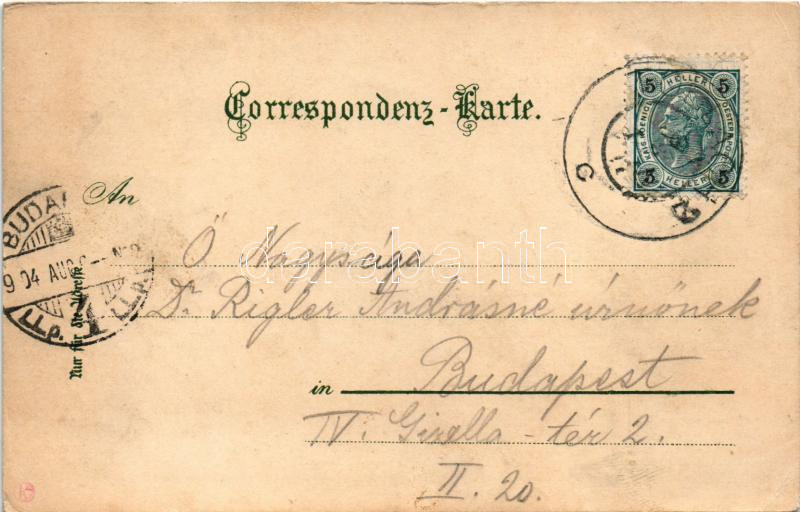 Correspondenz-Karte.
5 HELLER 5
5 HELLER 5
An
BUDA
904 AUG
Ő Nagysága
Dr Rigler Andrásné úrnőnek
in Budapest
IV. Gizella-tér 2.
II. 20.
Nur für die Adresse
darabanth